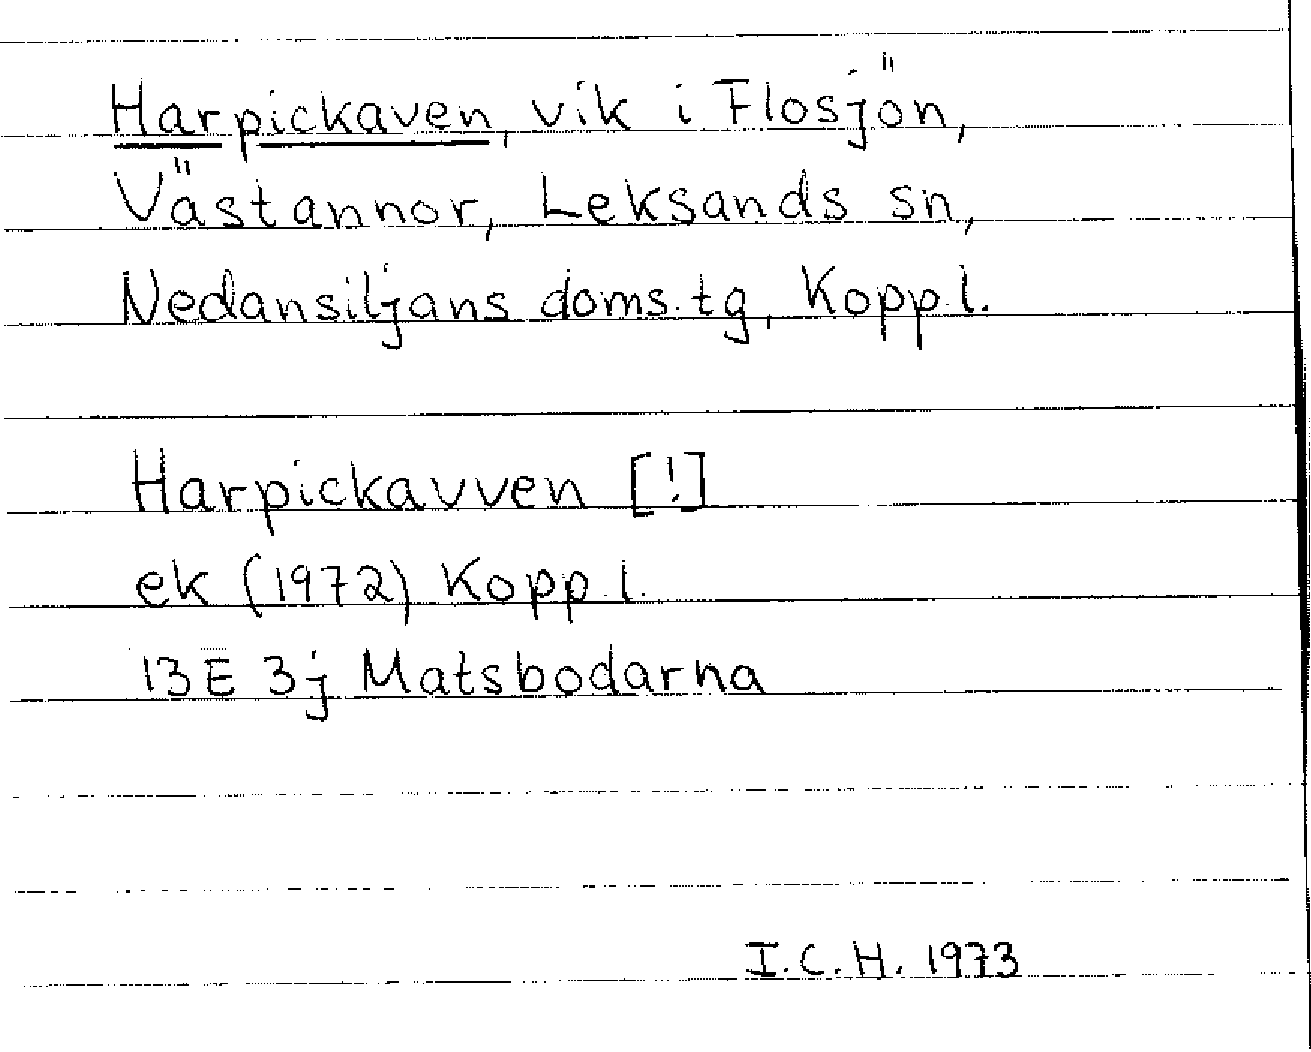 Harpickaven, vik i Flosjön,
Västannor, Leksands sn,
Nedansiljans doms.tg, Kopp.l.
Harpickavven [!]
ek (1972) Kopp.l.
13E 3j Matsbodarna
I.C.H. 1973